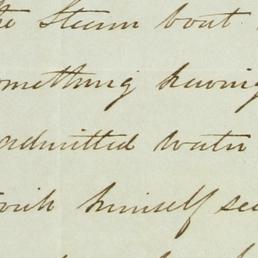 the Steam boat
something having
admitted water
himself see